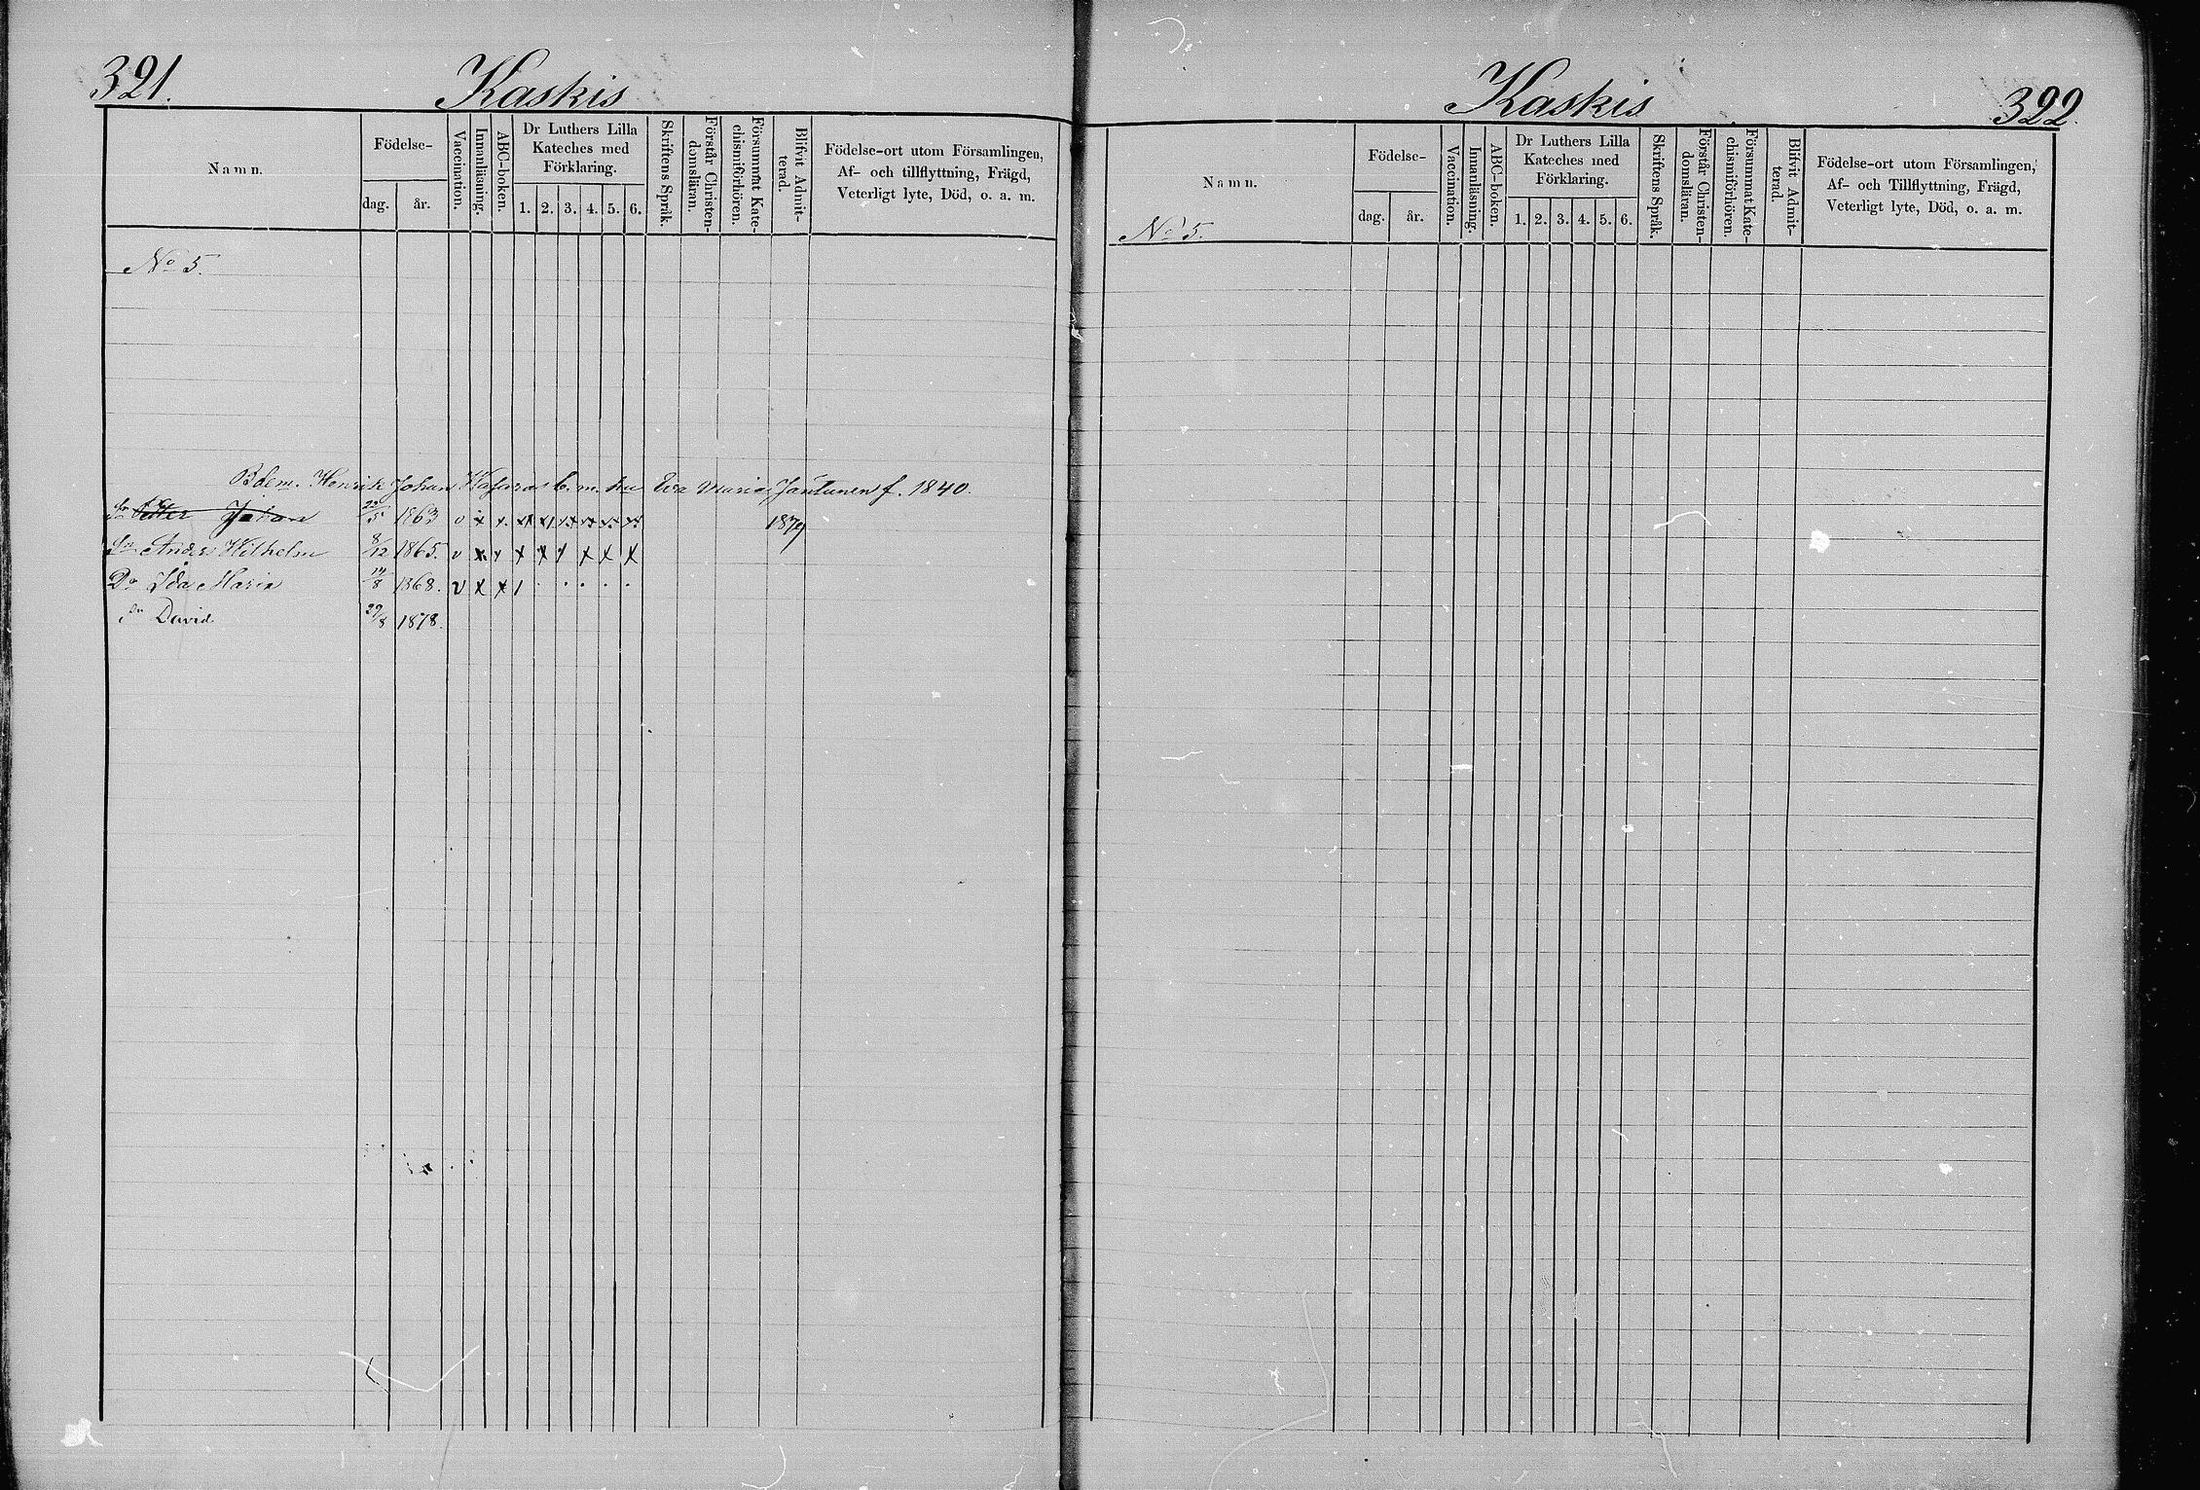 321.
Kaskis
Namn.
Födelse-
dag.
år.
Vaccination.
Innanläsning.
ABC-boken.
Dr Luthers Lilla
Kateches med
Förklaring.
1. 2. 3. 4. 5. 6.
Skriftens Språk.
Förstår Christen-
domsläran.
Försummat Kate-
chismiförhören.
Blifvit Admit-
terad.
Födelse-ort utom Församlingen,
Af- och tillflyttning, Frägd,
Veterligt lyte, Död, o. a. m.
No 5.
Bdem. Henrik Johan b. m. hu Eva Maria Jantunen f. 1840.
Sn Petter Johan 22/5 1863 v x x. x1 x1 xx xx xx xx 1879
Sn Ander Wilhelm 8/12 1865. v x x x x x x x x
Dr Ida Maria 14/8 1868. v x x 1 . . . . .
Sn David 29/8 1878.
Kaskis
322.
Namn.
Födelse-
dag.
år.
Vaccination.
Innanläsning.
ABC-boken.
Dr Luthers Lilla
Kateches med
Förklaring.
1. 2. 3. 4. 5. 6.
Skriftens Språk.
Förstår Christen-
domsläran.
Försummat Kate-
chismiförhören.
Blifvit Admit-
terad.
Födelse-ort utom Församlingen,
Af- och Tillflyttning, Frägd,
Veterligt lyte, Död, o. a. m.
No 5.